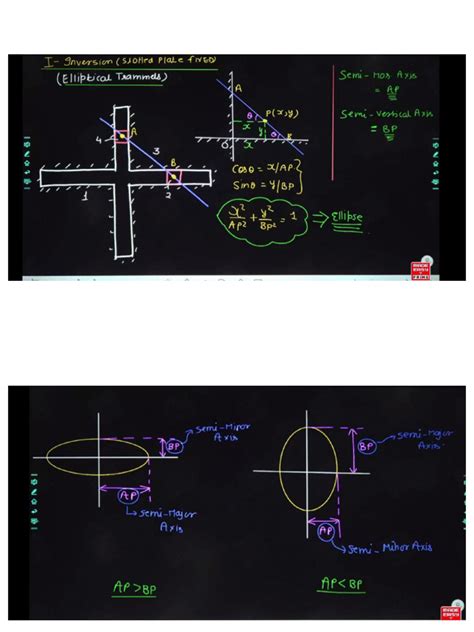 I- Inversion (Slotted Plate fixed)
(Elliptical Trammels)
Semi-Hor Axis
= AP
Semi-Vertical Axis
= BP
A
θ
P(x,y)
x
y
θ
B
O
x
A
4
3
B
1
2
cosθ = x/AP
sinθ = y/BP
x²/AP² + y²/BP² = 1 ⇒ Ellipse
Semi-Minor
Axis
BP
AP
Semi-Major
Axis
AP>BP
Semi-Major
Axis
BP
AP
Semi-Minor Axis
AP<BP